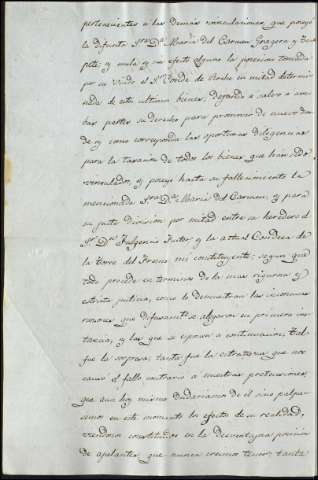 pertenecientes a las demas vinculaciones, que poseyó
la difunta Sra. Da. Maria del Carmen Gragera y Tor
pete; y nula y sin efecto alguno la posesion tomada
por su viudo el Sr. Conde de Roche en mitad determi-
nada de estos ultimos bienes, dejando a salvo a am-
bas partes su derecho para promover de nuevo don-
de y como corresponda las oportunas diligencias
para la tasacion de todos los bienes que han sido
vinculados, y poseyó hasta su fallecimiento la
mencionada Sra. Da. Maria del Carmen, y para
su justa division por mitad entre su heredero el
Sr. Dn. Fulgencio Fuster y la actual Condesa de
la torre del Fresno mi constituyente: segun que
todo procede en terminos de la mas rigurosa y
estricta justicia, como lo demuestran las inconcusas
razones que difusamente se alegaron en primera ins-
tancia, y las que se esponen a continuacion. Tal
fue la sorpresa, tanta fue la estrañeza que nos
causó el fallo contrario a nuestras pretensiones,
que aun hoy mismo dudariamos de el sino palpase-
mos en este momento los efectos de su realidad,
viendonos constituidos en la desventajosa posicion
de apelantes que nunca creimos tener; tanta